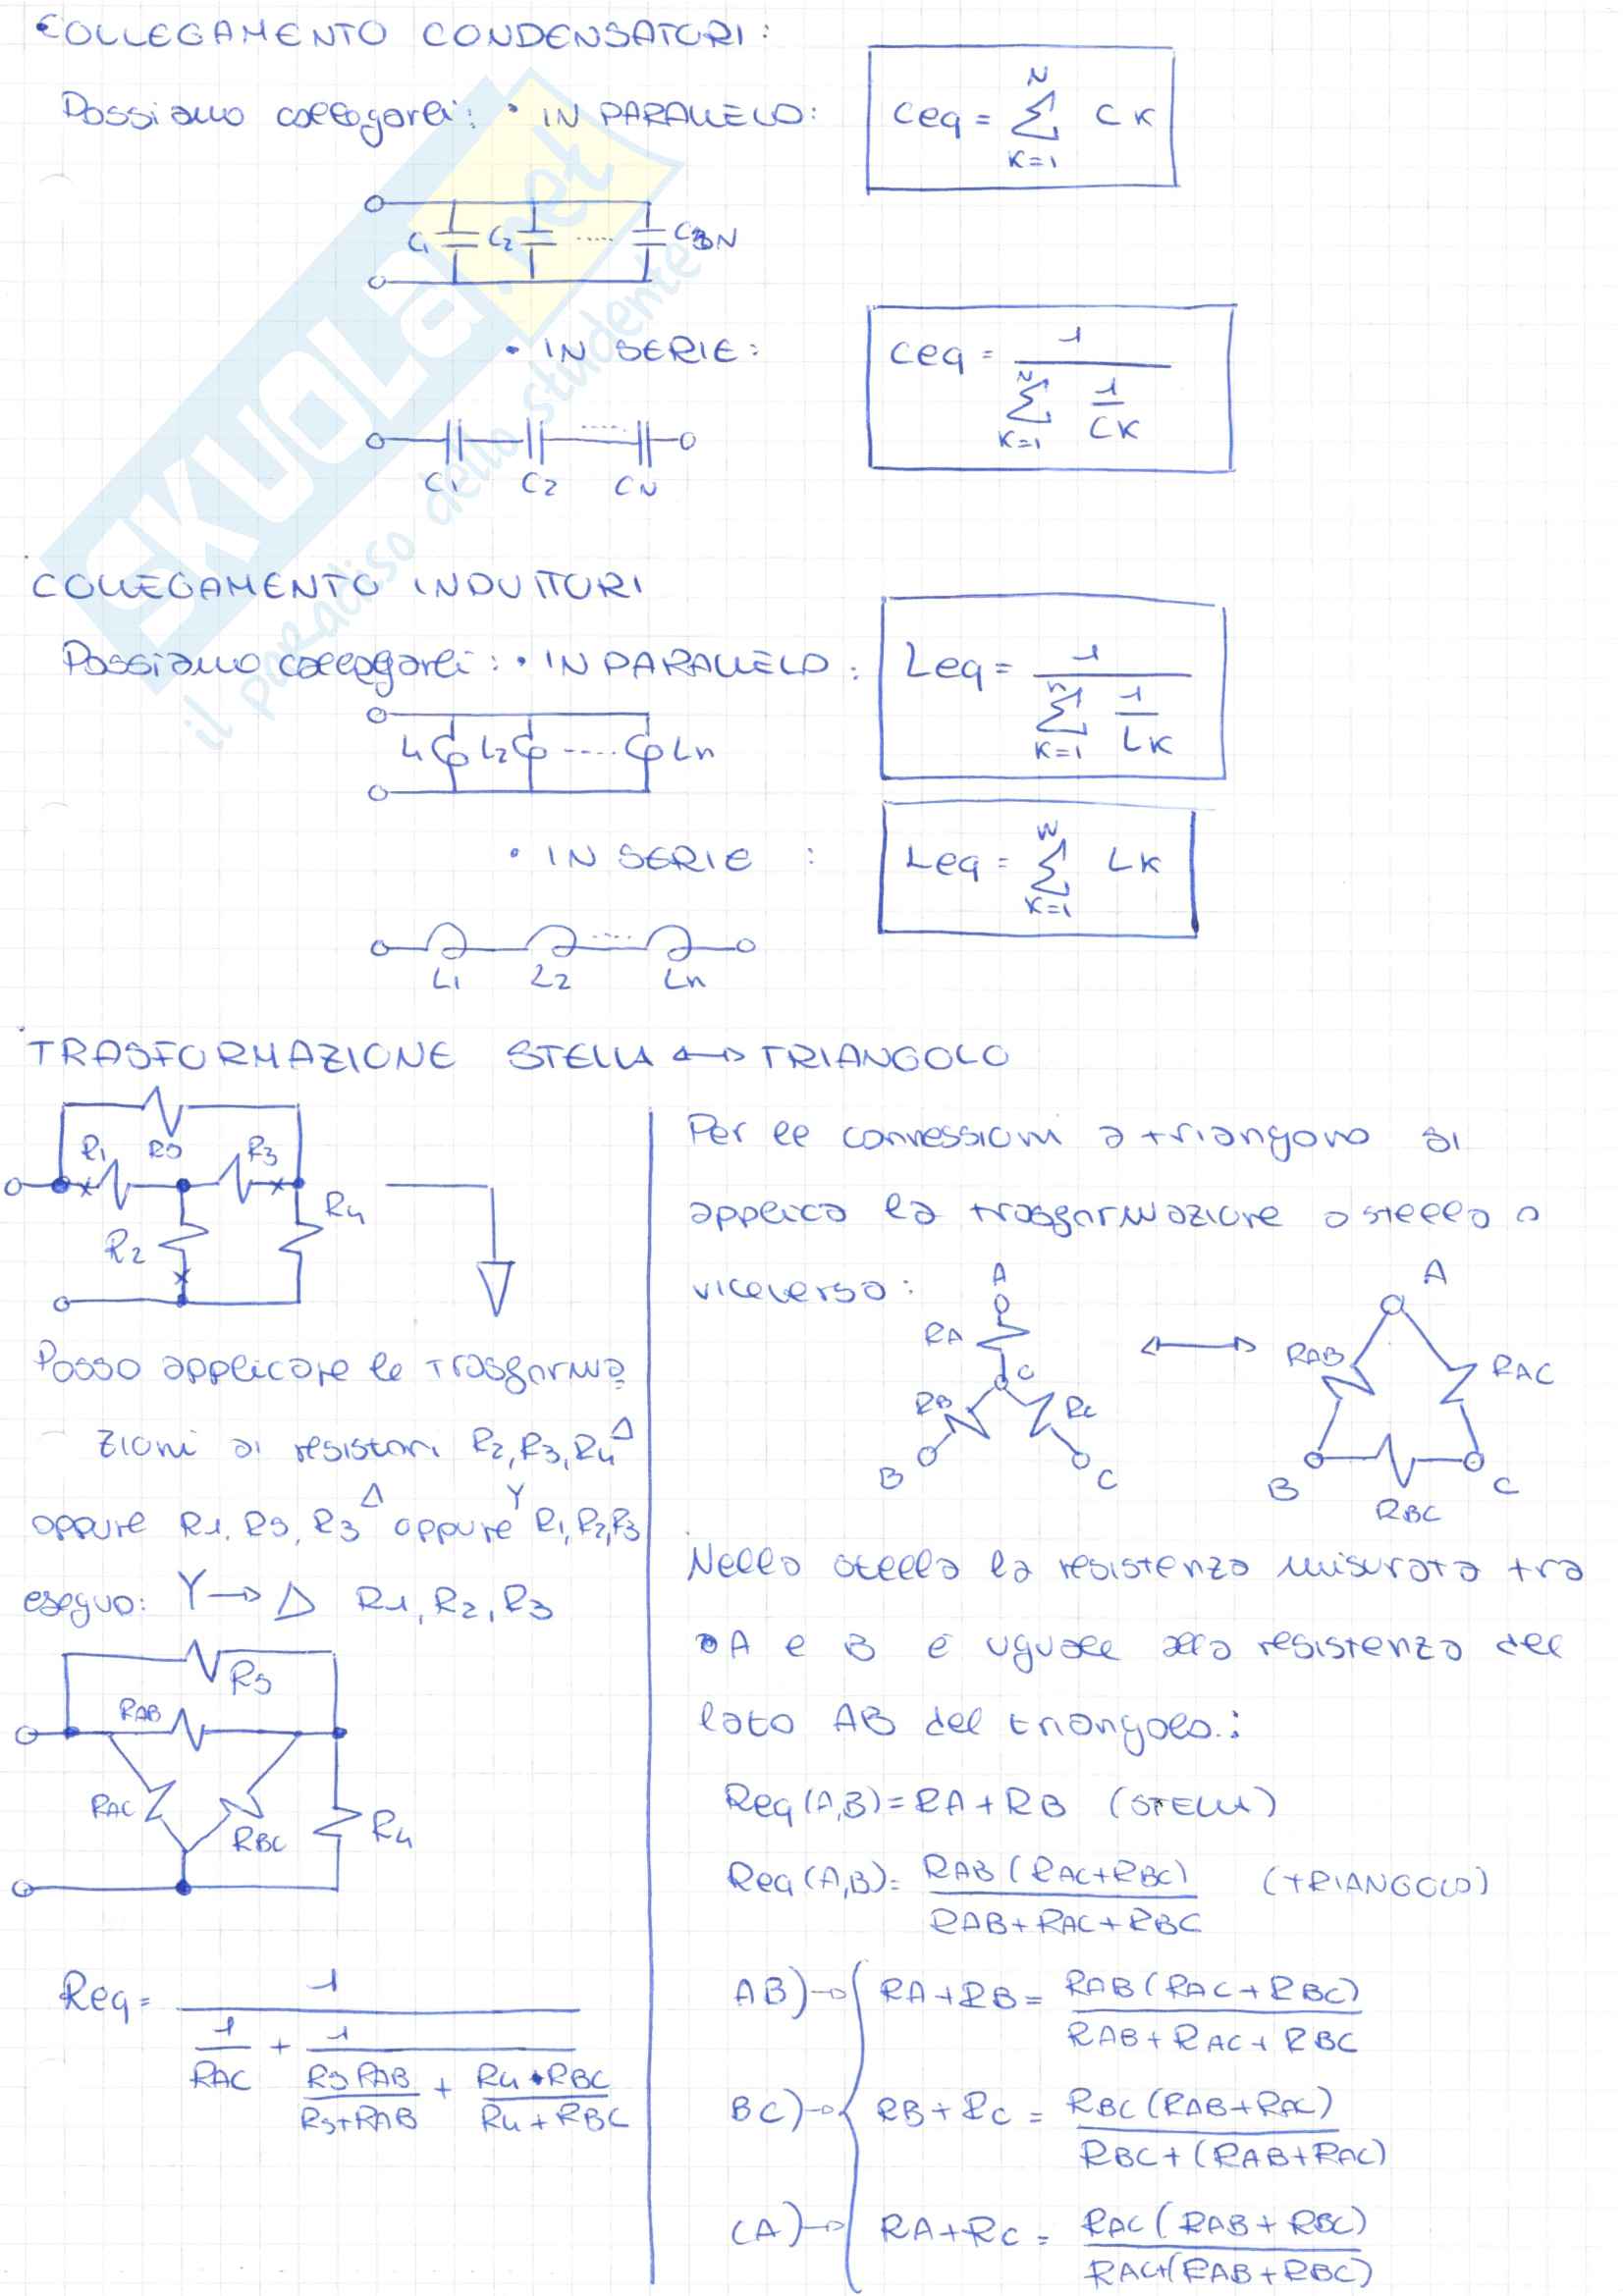 COLLEGAMENTO CONDENSATORI:
Possiamo collegarli: • IN PARALLELO:
Ceq = N Σ K=1 CK
C1 C2 ..... CN
• IN SERIE:
Ceq = 1 / N Σ K=1 1/CK
C1 C2 ..... CN
COLLEGAMENTO INDUTTORI
Possiamo collegarli: • IN PARALLELO:
Leq = 1 / n Σ K=1 1/LK
L1 L2 ..... Ln
• IN SERIE :
Leq = N Σ K=1 LK
L1 L2 ..... Ln
TRASFORMAZIONE STELLA ↔ TRIANGOLO
R5
R1 R3
R2 R4
Posso applicare le trasforma
zioni ai resistori R2, R3, R4 Δ
oppure R1, R5, R3 Δ oppure Y R1, R2, R3
eseguo: Y → Δ R1, R2, R3
R5
RAB
RAC RBC R4
Req = 1 / 1/RAC + 1 / R5 RAB / R5+RAB + R4 • RBC / R4 + RBC
Per le connessioni a triangolo si
applica la trasformazione a stella o
viceversa:
A
RA
C
RB RC
B C
A
RAB RAC
B C
RBC
Nella stella la resistenza misurata tra
A e B è uguale alla resistenza del
lato AB del triangolo.:
Req (A,B) = RA + RB (STELLA)
Req (A,B) = RAB (RAC+RBC) / RAB + RAC + RBC (TRIANGOLO)
AB) → { RA + RB = RAB (RAC + RBC) / RAB + RAC + RBC
BC) → RB + RC = RBC (RAB+RAC) / RBC + (RAB+RAC)
CA) → RA + RC = RAC (RAB + RBC) / RAC+(RAB+RBC)
SKUOLA.net
il paradiso dello studente